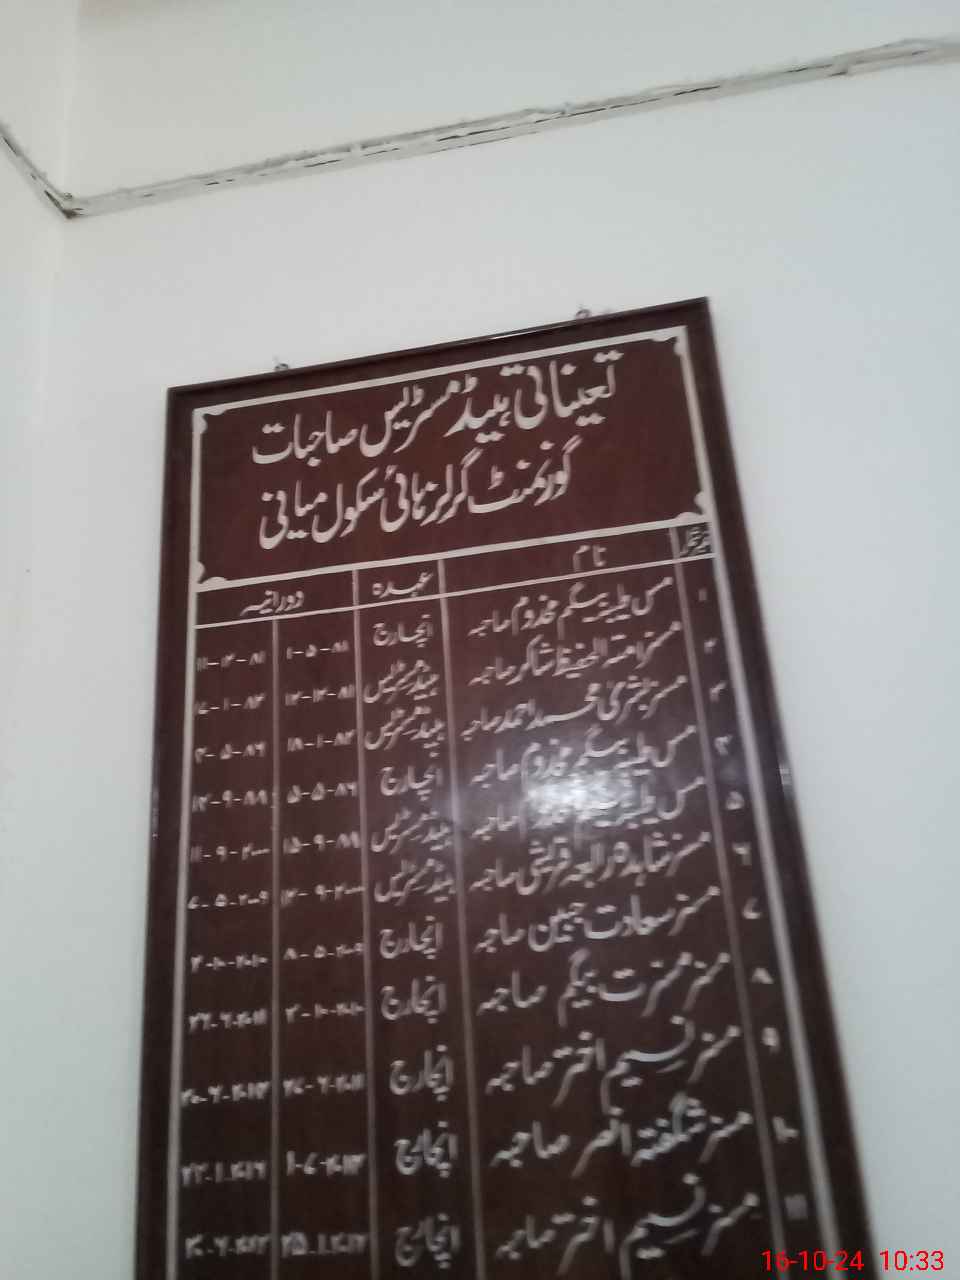 تعیناتی ہیڈ مسٹریس صاحبات
گورنمنٹ گرلز ہائی سکول میانی
نمبر شمار نام عہدہ دورانیہ
۱ مس طیبہ بیگم مخدوم صاحبہ انچارج ۱-۵-۸۱ ۱۱-۱۲-۸۱
۲ مسز امتہ الحفیظ شاکر صاحبہ ہیڈ مسٹریس ۱۲-۱۲-۸۱ ۷-۱-۸۲
۳ مسز بشریٰ محمد احمد صاحبہ ہیڈ مسٹریس ۱۸-۱-۸۲ ۲-۵-۸۶
۴ مس طیبہ بیگم مخدوم صاحبہ انچارج ۵-۵-۸۶ ۱۲-۹-۸۹
۵ مس طیبہ بیگم مخدوم صاحبہ ہیڈ مسٹریس ۱۵-۹-۸۹ ۱۱-۹-۲۰۰۰
۶ مسز شاہدہ رابعہ قریشی صاحبہ ہیڈ مسٹریس ۱۲-۹-۲۰۰۰ ۷-۵-۲۰۰۹
۷ مسز سعادت جبین صاحبہ انچارج ۸-۵-۲۰۰۹ ۲-۱۰-۲۰۱۰
۸ مسز مسرت بیگم صاحبہ انچارج ۳-۱۰-۲۰۱۰ ۲۶-۶-۲۰۱۱
۹ مسز نسیم اختر صاحبہ انچارج ۲۷-۶-۲۰۱۱ ۳۰-۶-۲۰۱۳
۱۰ مسز شگفتہ انصر صاحبہ انچارج ۱-۷-۲۰۱۳ ۲۲-۱-۲۰۱۶
۱۱ مسز نسیم اختر صاحبہ انچارج
16-10-24 10:33